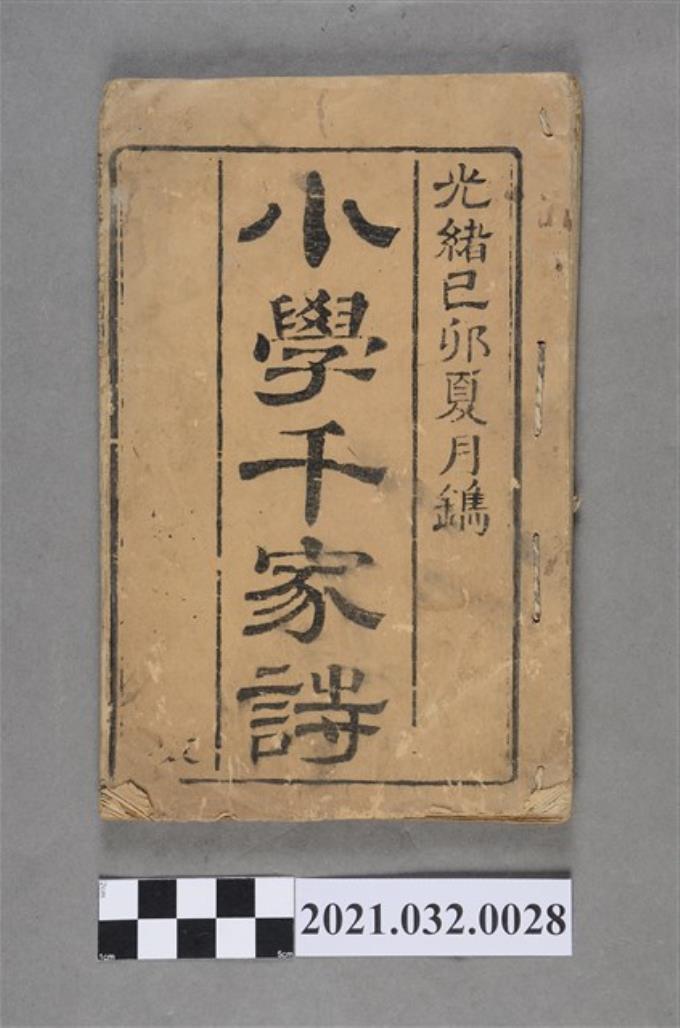 光緒己卯夏月鐫
小學千家詩
2021.032.0028
1cm
5cm